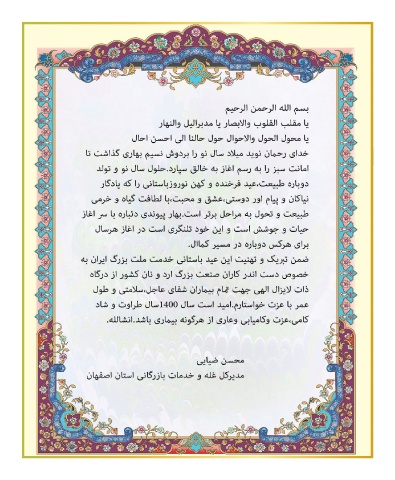 بسم الله الرحمن الرحیم
یا مقلب القلوب والابصار یا مدبرالیل والنهار
یا محول الحول والاحوال حول حالنا الی احسن احال
خدای رحمان نوید میلاد سال نو را بردوش نسیم بهاری گذاشت تا
امانت سبز را به رسم اغاز به خالق سپارد.حلول سال نو و تولد
دوباره طبیعت،عید فرخنده و کهن نوروزباستانی را که یادگار
نیاکان و پیام اور دوستی،عشق و محبت،با لطافت گیاه و خرمی
طبیعت و تحول به مراحل برتر است.بهار پیوندی دئباره با سر اغاز
حیات و جوشش است و این خود تلنگری است در اغاز هرسال
برای هرکس دوباره در مسیر کمال.
ضمن تبریک و تهنیت این عید باستانی خدمت ملت بزرگ ایران به
خصوص دست اندر کاران صنعت بزرگ ارد و نان کشور از درگاه
ذات لایزال الهی جهت تمام بیماران شفای عاجل،سلامتی و طول
عمر با عزت خواستارم.امید است سال 1400سال طراوت و شاد
کامی،عزت وکامیابی وعاری از هرگونه بیماری باشد.انشالله.
محسن ضیایی
مدیرکل غله و خدمات بازرگانی استان اصفهان